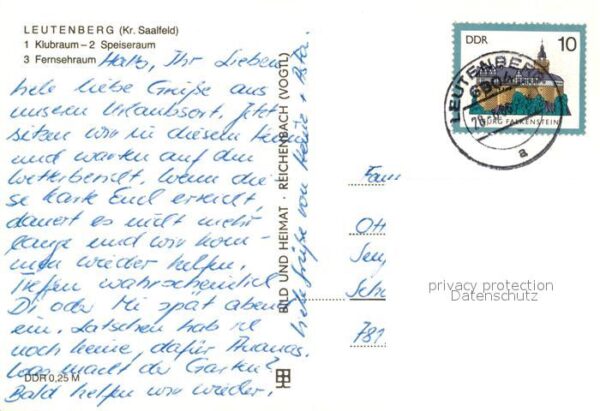 LEUTENBERG (Kr. Saalfeld)
1 Klubraum – 2 Speiseraum
3 Fernsehraum
Hallo, Ihr Lieben
liebe Grüße aus
unserem Urlaubsort. Jetzt
sitzen wir in diesem
und warten auf den
Wetterbericht. Wenn die-
se Karte Euch erreicht,
dauert es nicht mehr
lange und wir kom-
men wieder helfen.
Treffen wahrscheinlich
Di oder Mi spät abends
ein. Latschen hab ich
noch keine, dafür Ananas.
Was macht der Garten?
Bald helfen wir wieder.
DDR 0,25 M
Grüße von
BILD UND HEIMAT · REICHENBACH (VOGTL)
DDR
10
BURG FALKENSTEIN
LEUTENBERG
a
Fam
Ott
Sch
privacy protection
Datenschutz